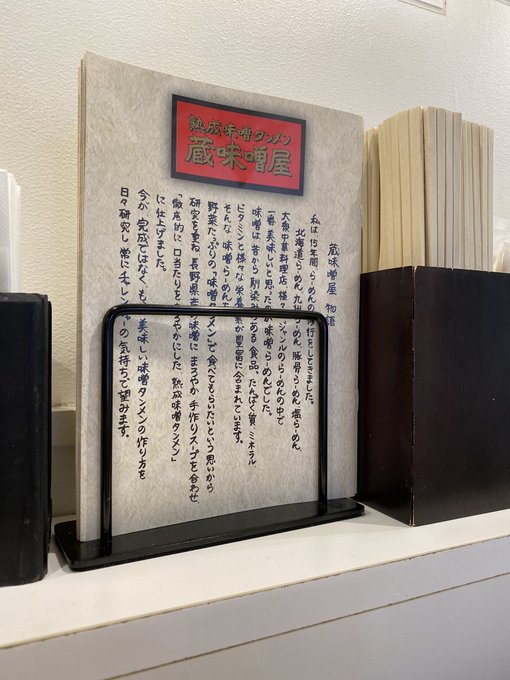 熟成味噌タンメン
蔵味噌屋
蔵味噌屋 物語
私は15年間、らーめんの修行をしてきました。
北海道らーめん、九州らーめん、豚骨らーめん、塩らーめん、
大衆中華料理店、様々なジャンルのらーめんの中で
一番美味しいと思ったのが味噌らーめんでした。
味噌は、昔から馴染みのある食品。たんぱく質、ミネラル
ビタミンと様々な栄養素が豊富に含まれています。
そんな、味噌らーめんを
野菜たっぷりの「味噌タンメン」で食べてもらいたいという思いから
研究を重ね、長野県産の味噌に、まろやか手作りスープを合わせ、
「徹底的に口当たりをまろやかにした、熟成味噌タンメン」
に仕上げました。
今が、完成ではなく、もっと美味しい味噌タンメンの作り方を
日々研究し、常にチャレンジャーの気持ちで望みます。